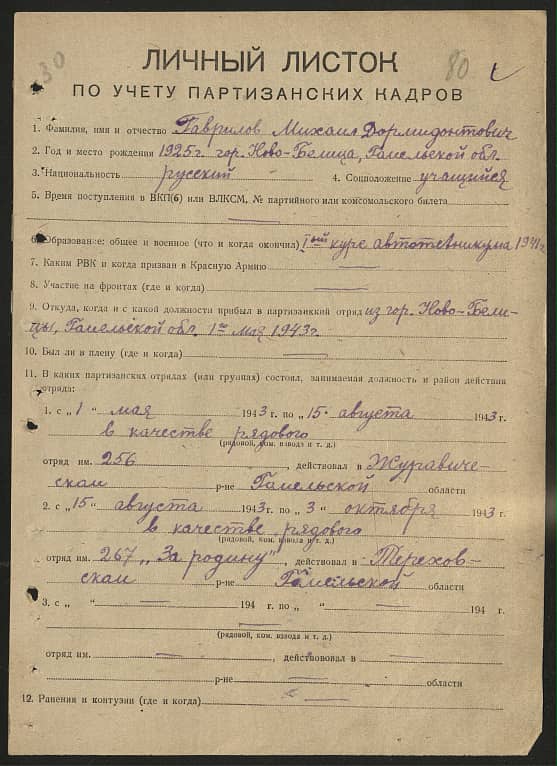 30
80
ЛИЧНЫЙ ЛИСТОК
ПО УЧЕТУ ПАРТИЗАНСКИХ КАДРОВ
1. Фамилия, имя и отчество Гаврилов Михаил Дормидонтович
2. Год и место рождения 1925г. гор. Ново-Белица, Гомельской обл.
3. Национальность русский 4. Соцположение учащийся
5. Время поступления в ВКП(б) или ВЛКСМ, № партийного или комсомольского билета
—
6. Образование: общее и военное (что и когда окончил) Iый курс автотехникума 1941г.
7. Каким РВК и когда призван в Красную Армию —
8. Участие на фронтах (где и когда) —
9. Откуда, когда и с какой должности прибыл в партизанский отряд из гор. Ново-Бели-
цы, Гомельской обл. 1го мая 1943г.
10. Был ли в плену (где и когда) —
11. В каких партизанских отрядах (или группах) состоял, занимаемая должность и район действия
отряда:
1. с „1“ мая 1943 г. по „15“ августа 1943 г.
в качестве рядового
(рядовой, ком. взвода и т. д.)
отряд им. 256, действовал в Журавиче-
ском р-не Гомельской области
2. с „15“ августа 1943 г. по „3“ октября 1943 г.
в качестве рядового
(рядовой, ком. взвода и т. д.)
отряд им. 267 „За родину“, действовал в Терехов-
ском р-не Гомельской области
3. с „ “ — 194 г. по „ “ — 194 г.
—
(рядовой, ком. взвода и т. д.)
отряд им. —, действовал в —
— р-не — области
12. Ранения и контузии (где и когда) —